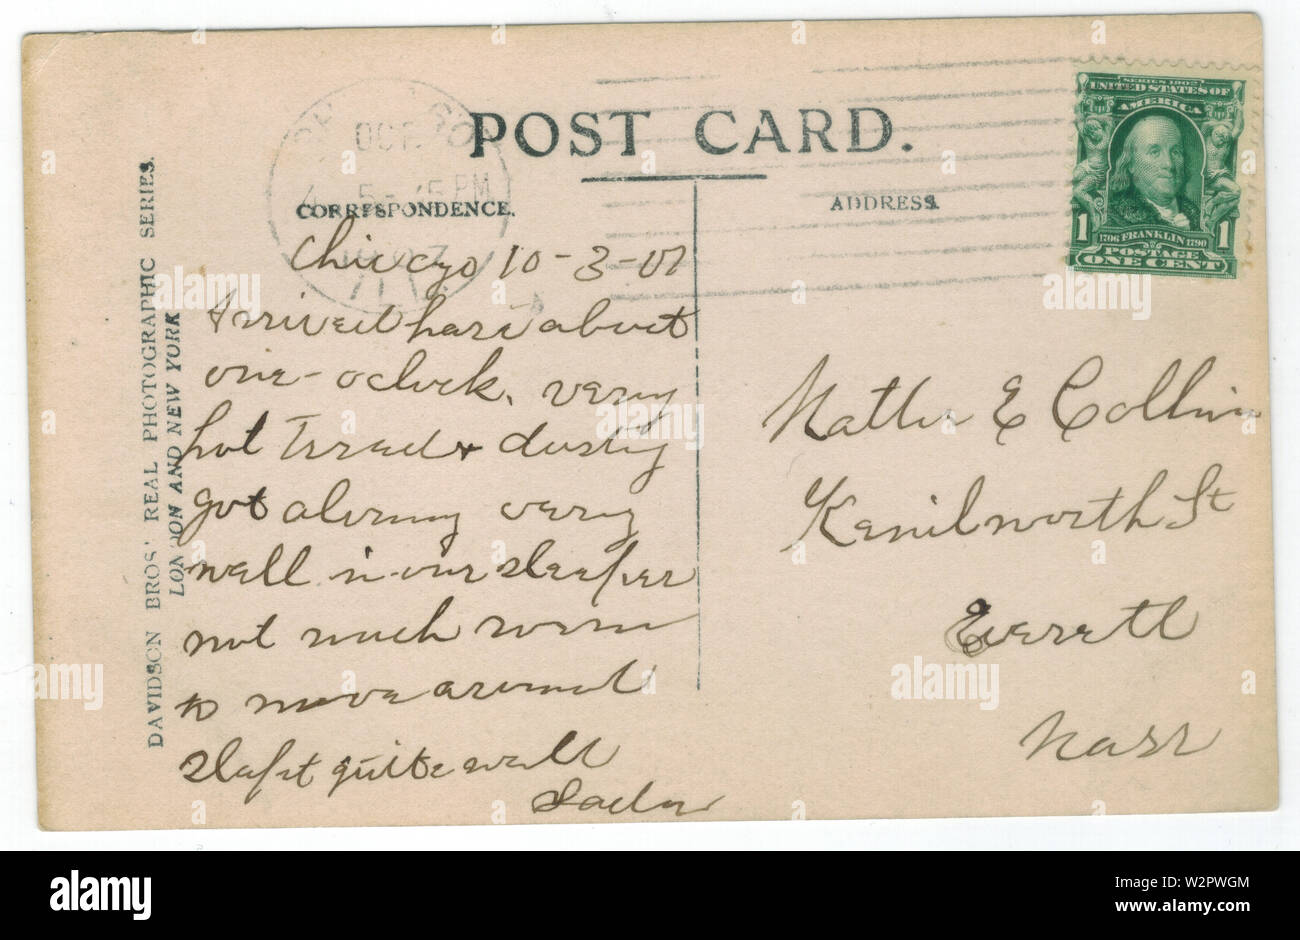 POST CARD.
CORRESPONDENCE.
ADDRESS.
SERIES 1902
UNITED STATES OF
AMERICA
1 1
1706 FRANKLIN 1790
POSTAGE
ONE CENT
OCT
5-15 PM
1907
DAVIDSON BROS' REAL PHOTOGRAPHIC SERIES.
LONDON AND NEW YORK
Chicago 10-3-07
Arrived here about
one-oclock, very
hot Tired & dusty
got along very
well in our sleeper
not much room
to move around
slept quite well
E Collins
Kenilworth St
Everett
Mass
alamy
Image ID: W2PWGM
www.alamy.com